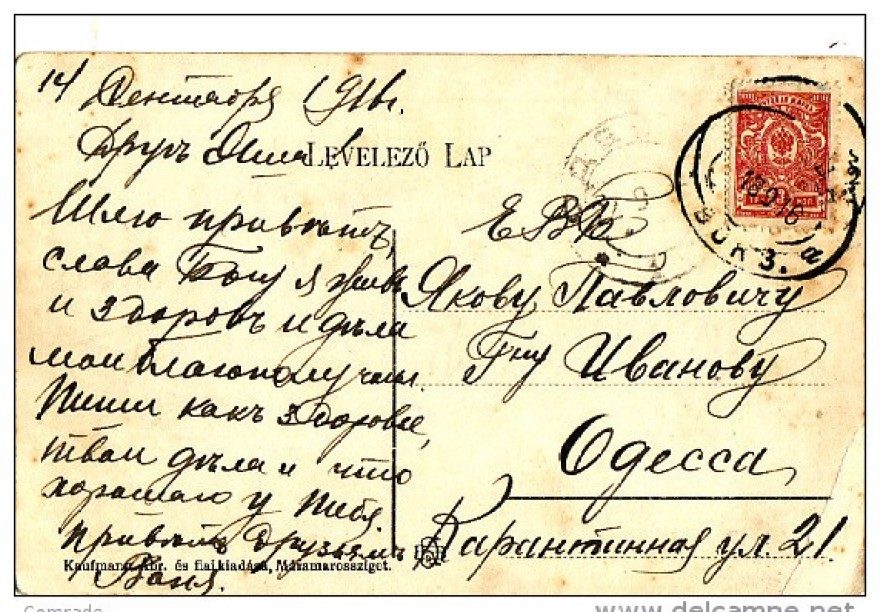 14 Сентября 1916 г.
Другъ Яша!
LEVELEZŐ LAP
Шлю привѣтъ,
слава Богу я живъ
и здоровъ и дѣла
мои благополучны.
Пиши какъ здоровье,
твои дѣла и что
хорошаго у тебя.
Привѣтъ друзьямъ.
Ваня.
Е В Б
Якову Павловичу
Г-ну Иванову
Одесса
Карантинная ул. 21.
18 9 16
ВОКЗ.
Kaufmann Abr. és fiai kiadása, Máramarossziget.
www.delcampe.net